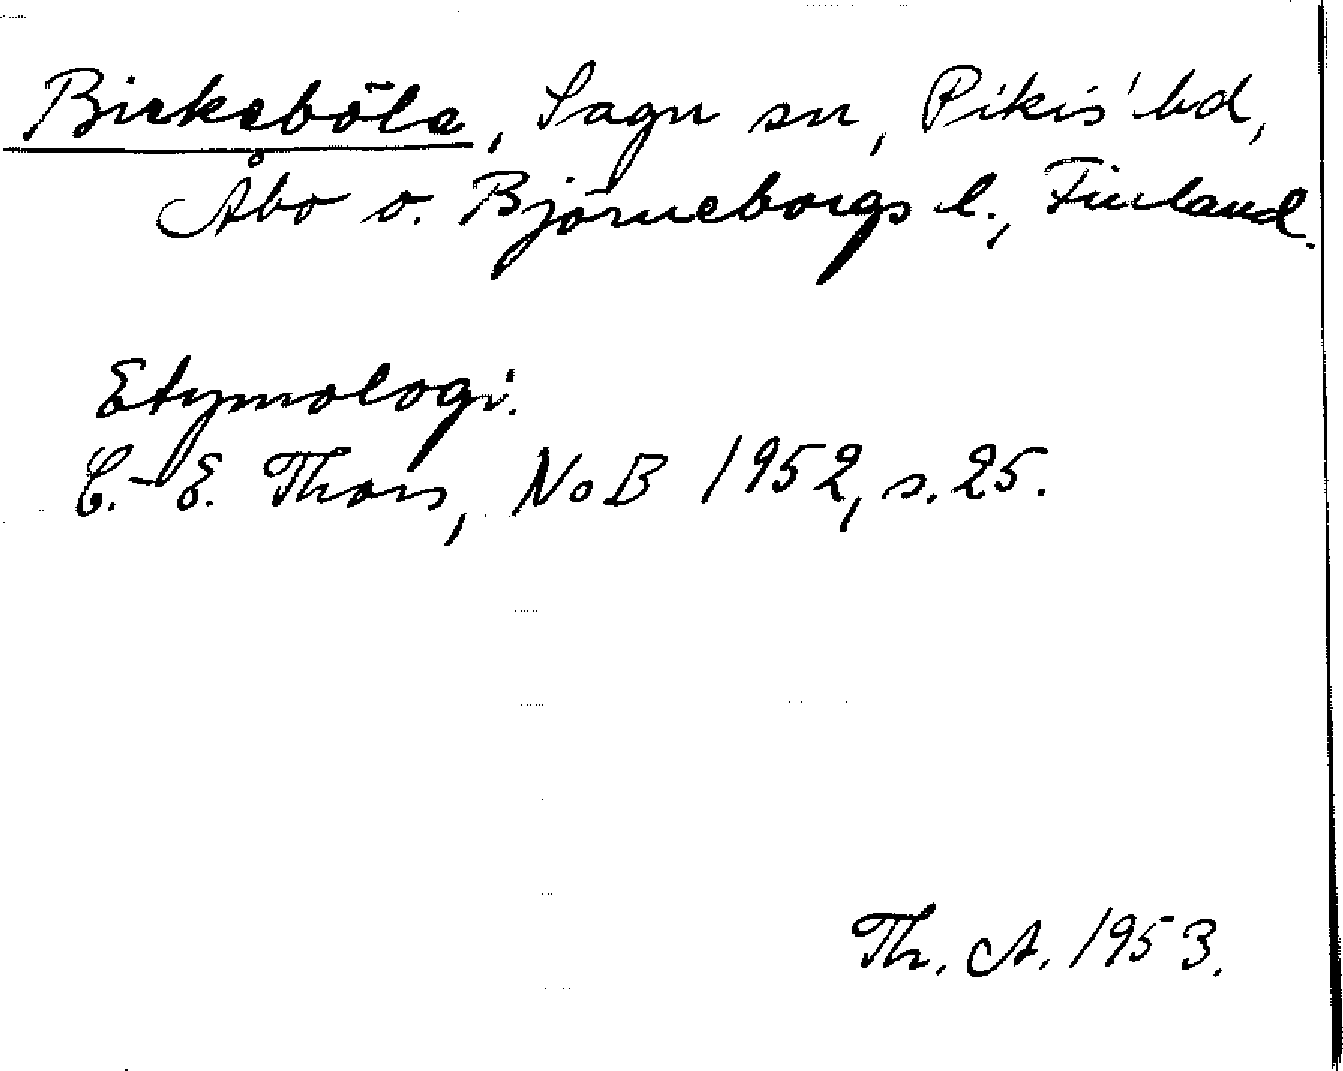 Birkeböle, Sagu sn, Pikis' hd,
Åbo o. Björneborgs l., Finland.
Etymologi.
C.-E. Thors, NoB 1952, s. 25.
Th. A. 1953.